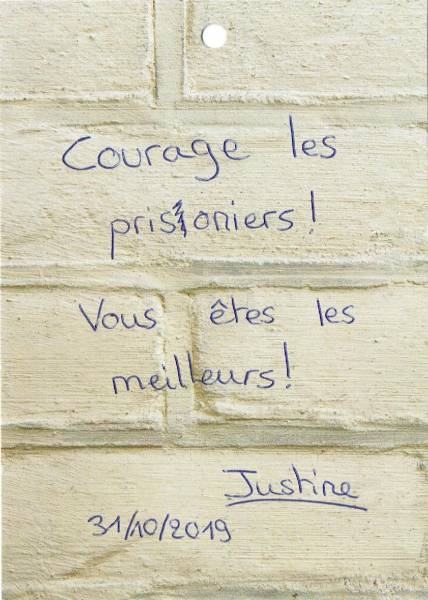 Courage les
prisioniers!
Vous êtes les
meilleurs!
Justine
31/10/2019